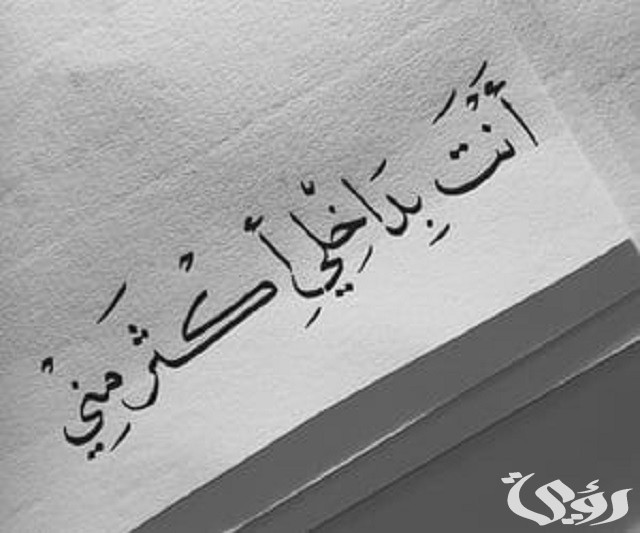 أَنْتَ بِدَاخِلِي أَكْثَر مِنِّي
رؤية